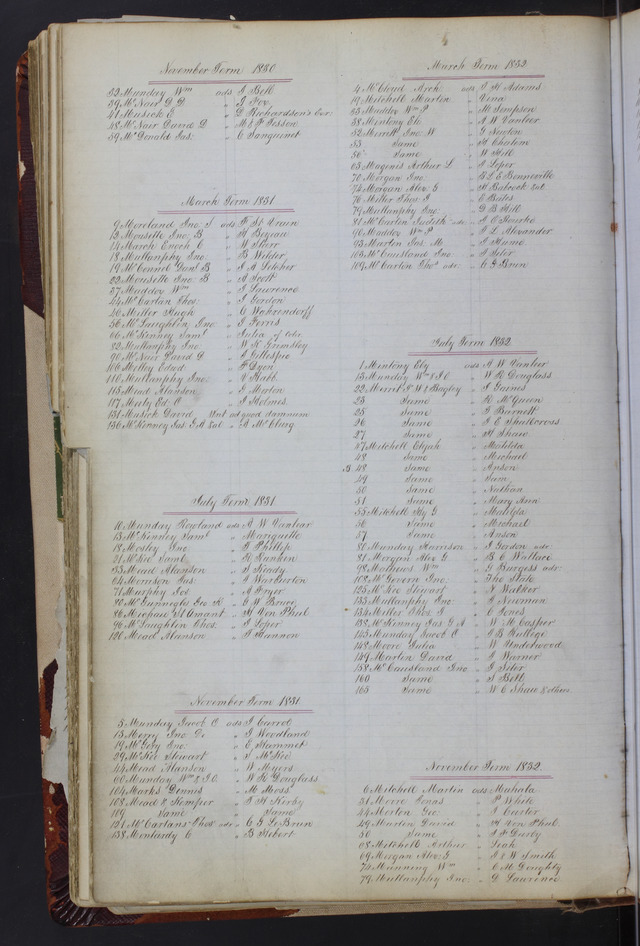 November Term 1830
32 Munday Wm ads J Bell
39 McNair D D " J Fox
41 Musick E " D Richardson's Exr
48 McNair David D " M & F Tesson
59 McDonald Jas " C Sanguinet
March Term 1831
9 Moreland Jno J ads F St Vrain
13 Mousette Jno B " H Bogeau
14 March Enoch C " W Sherr
18 Mullanphy Jno " B Wilder
19 McConnel Danl B " J A Letcher
22 Mousette Jno B " A Scott
27 Maddox Wm " J Lawrence
44 McCartin Thos " J Gordon
46 Miller Hugh " C Wahrendorff
56 McLaughlin Jno " J Ferris
66 McKenney Saml " Julia of Color
82 Mullanphy Jno " W K Grimsley
90 McNair David D " A Gillespie
106 Melley Edwd " F Dyon
110 Mullanphy Jno " A Rabb
115 Mead Alanson " G Morton
117 Maly Ed. C " J Holmes
131 Musick David Writ ad quod damnum
136 McKenney Jas G A Sal " A McClurg
July Term 1831
10 Munday Rowland ads A W Vanlear
13 McKinney Saml " Marguille
18 Mosley Jno " F Phillip
21 McKee Saml " R Rankin
33 Mead Alanson " S Hardy
64 Morrison Jas " A Warburton
71 Murphy Jos " A Fryer
80 McGunnegle Geo K " G W Bruce
86 " H Von Phul
96 McLaughlin Thos " J Loper
120 Mead Alanson " J Hannon
November Term 1831
5 Munday Jacob C ads J Carrol
13 Merry Jno De " J Woodland
19 McGoby Eno " E Hammet
29 McKee Stewart " S McKee
44 Mead Alanson " W Myers
60 Munday Wm & I C " W H Douglass
104 Marks Dennis " M Moss
108 Mead & Kemper " J H Kerby
109 Same " Same
121 McCartans Thos adr " C G Le Brun
138 Montardy C " B Hebert
March Term 1832
4 McCloud Arch ads J H Adams
19 Mitchell Martin " Vina
33 Maddox Wm P " M Simpson
38 Mintony Eb " A W Vanleer
52 Merrill Jno W " G Newton
53 Same " H Chotem
56 Same " W Hill
63 Magenis Arthur L " J Loper
70 Morgan Jno " B L E Bonneville
74 Morgan Alex G " H Babcock Sal
76 Miller Thos J " E Bates
79 Mullanphy Jno " D B Hill
81 McCartan Judith adx " A C Hawke
90 Maddox Wm P " J L Alexander
93 Morton Jos M " J Hume
105 McCausland Jno " J Siler
109 McCartan Thos adr " C G Brun
July Term 1832
1 Mintony Eby ads A W Vanleer
13 Munday Wm & J C " W H Douglass
22 Merrill J W & Bagley " J Garnel
23 Same " R McQueen
25 Same " J Burnett
26 Same " J E Shallcross
27 Same " H Shaw
47 Mitchell Elijah " Matilda
48 Same " Michael
B 48 Same " Anson
49 Same " Sam
50 Same " Nathan
51 Same " Mary Ann
55 Mitchell Ely G " Matilda
56 Same " Michael
57 Same " Anson
80 Munday Harrison " J Gordon adr
81 Morgan Alex G " R C Wallace
98 Mathews Wm " G Burgess adr
108 McGovern Jno " The State
125 McKee Stewart " N Walker
133 Mullanphy Jno " J Newman
134 Miller Thos J " E Jones
132 McKenney Jas G A " W H Casper
145 Munday Jacob C " J B Rutlege
148 Moore Julia " W Underwood
149 Martin David " J Warner
158 McCausland Jno " J Siler
160 Same " S Bell
163 Same " W C Shaw & others
November Term 1832
6 Mitchell Martin ads Mahala
31 Moore Jonas " P White
44 Morton Geo " J Carter
49 Martin David " H Von Phul
50 Same " J F Darby
68 Mitchell Arthur " Leah
69 Morgan Alex G " J & W Smith
74 Manning Wm " C M Doughty
79 Mullanphy Jno " D Lawrence